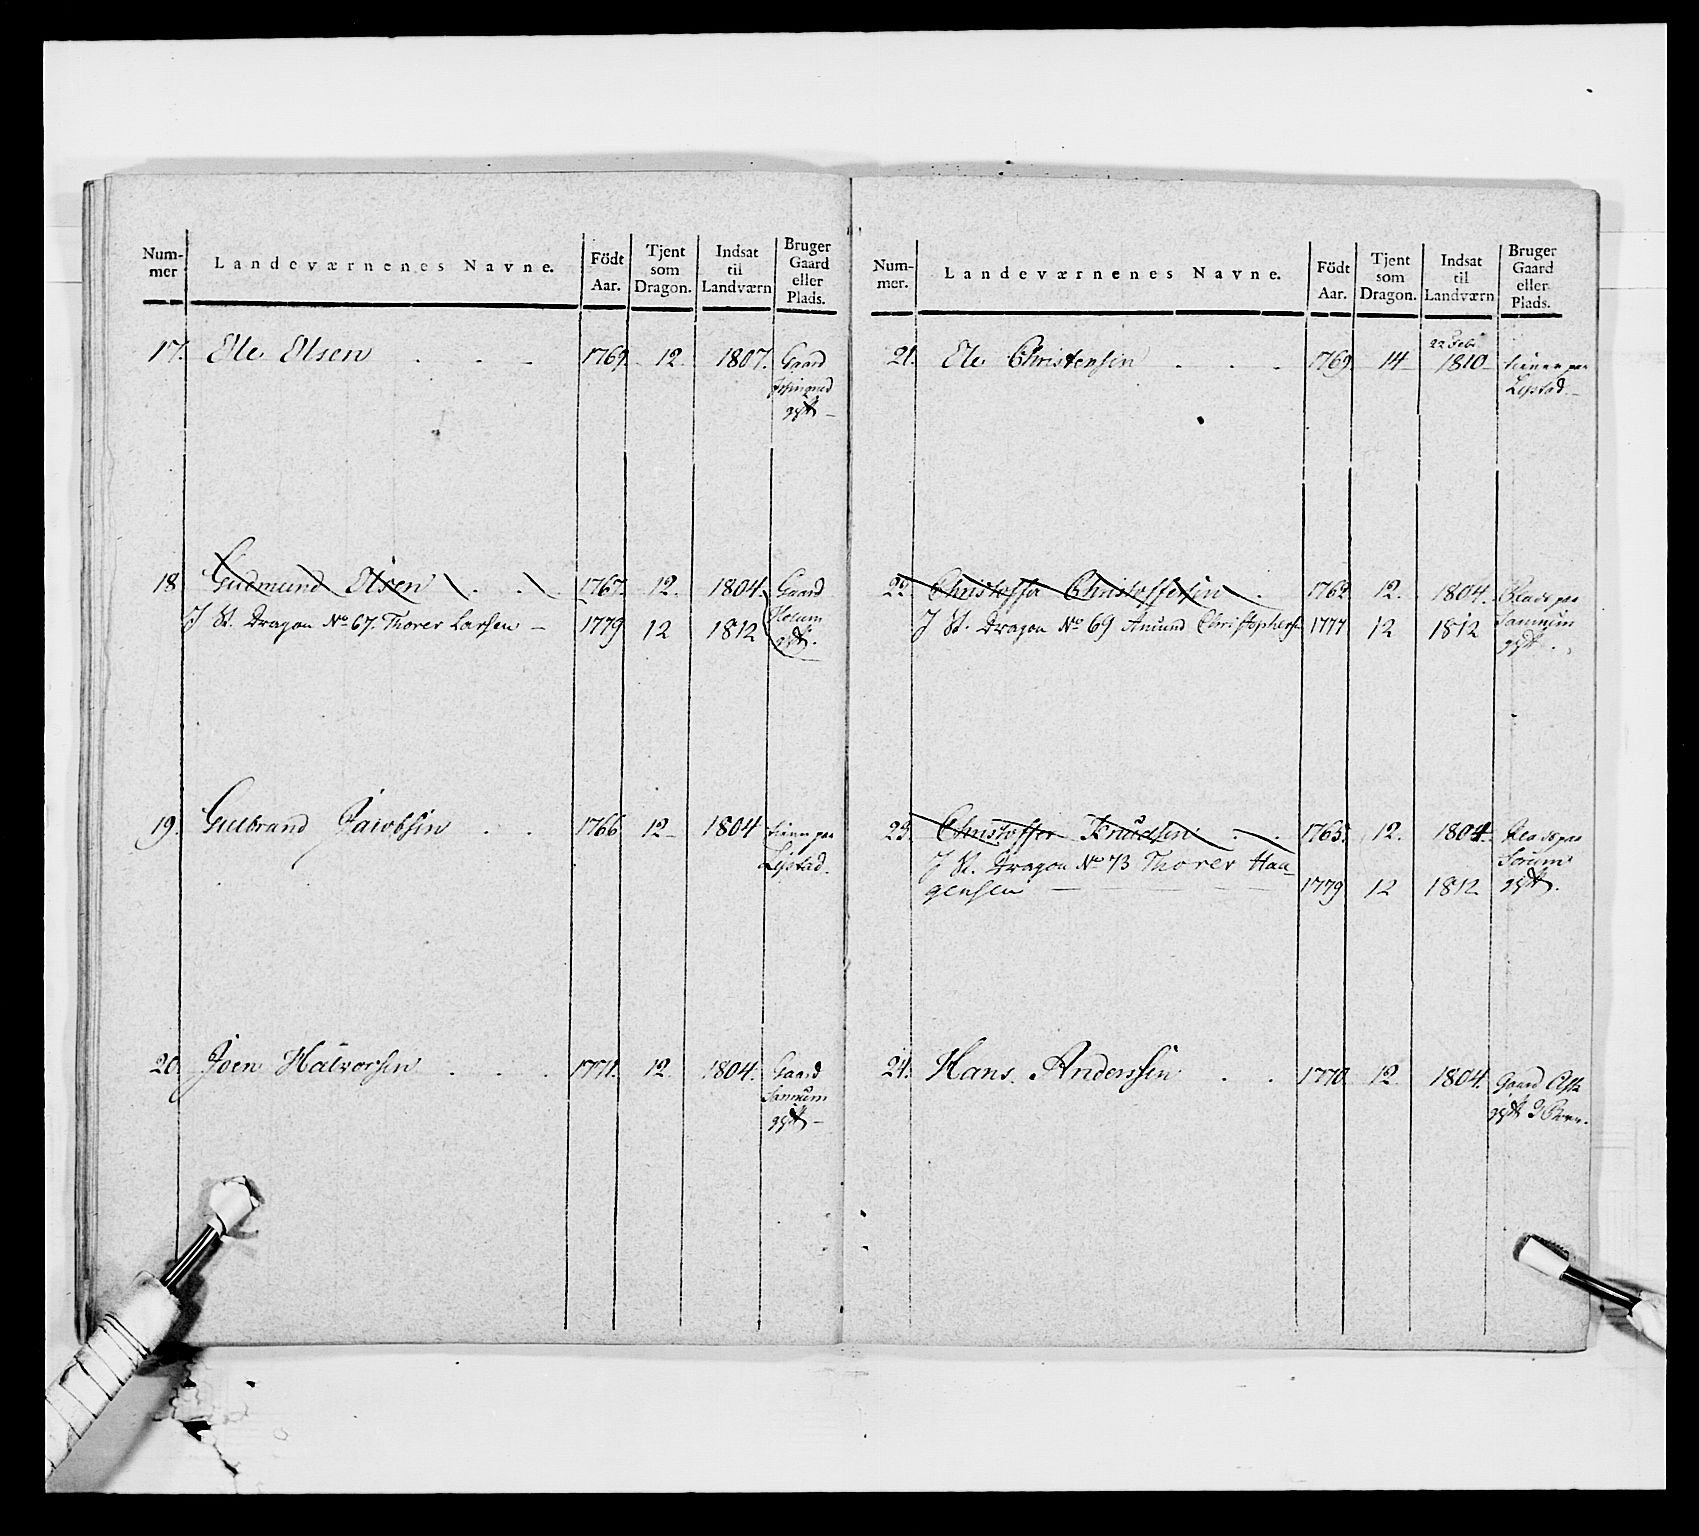 Num-
mer
Landeværnenes Navne.
Född
Aar.
Tjent
som
Dragon.
Indsat
til
Landværn
Bruger
Gaard
eller
Plads.
17. Ole Olsen . . - 1769. 12. 1807. Gaard
gift -
18. Gudmund Olsen . . 1767. 12. 1804. Gaard
J St. Dragon No 67. Thorer Larsen - 1779 12 1812 Helum
gift.
19. Gulbrand Jacobsen . . 1766 12 1804 tiener paa
Lystad.
20. Joen Halvorsen . . . 1771. 12. 1804. Gaard
Sannum
gift -
Num-
mer.
Landeværnenes Navne.
Födt
Aar.
Tjent
som
Dragon.
Indsat
til
Landværn
Bruger
Gaard
eller
Plads.
22 Feb
21. Ole Christensen . . . 1769 14 1810 tiener paa
Lystad
22. Christoffer Christoffersen . 1762 12. 1804. Plads paa
J St. Dragon No 69 Amund Christophers 1777 12 1812 Sannum
gift.
23. Christoffer Knudsen . . 1765. 12. 1804. Plads paa
J St. Dragon No 73 Thorer Haa- Sorum
gensen 1779 12 1812 gift.
24. Hans Anderssen . . 1770 12 1804. Gaard
gift